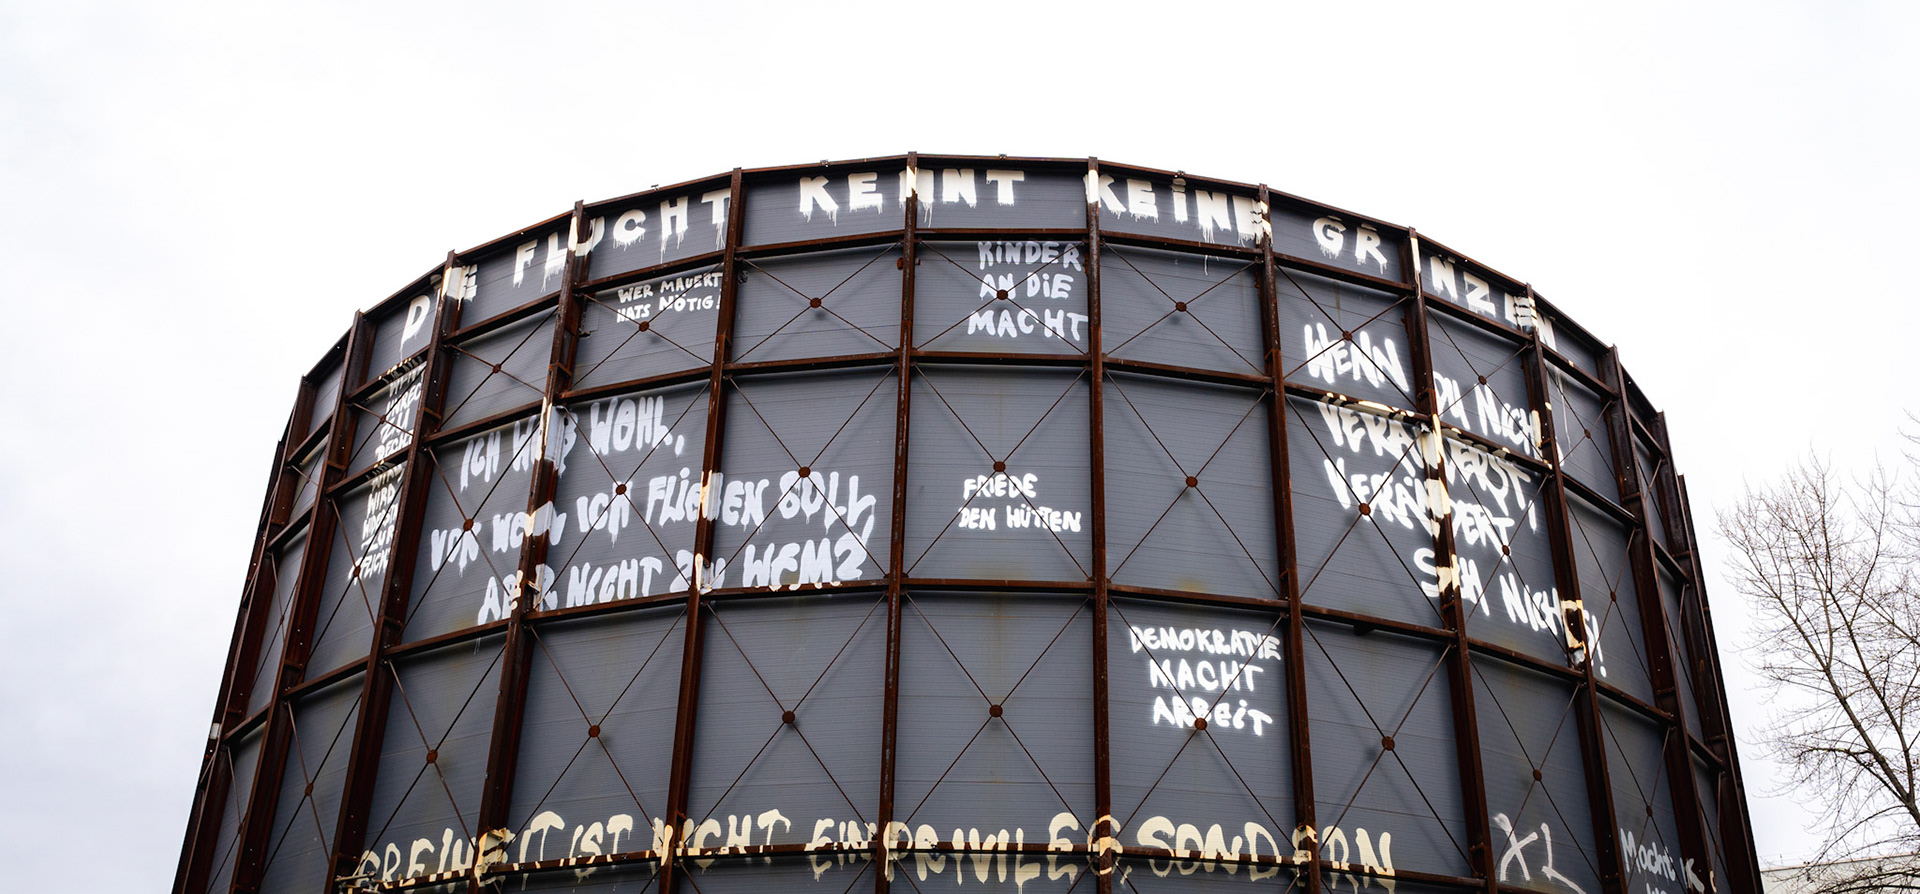 DIE FLUCHT KENNT KEINE GRENZEN.
WER MAUERT
HATS NÖTIG!
KINDER
AN DIE
MACHT
WENN
DU NICHTS
VERÄNDERST,
VERÄNDERT
SICH NICHTS!
ICH WEIß WOHL,
VOR WEM ICH FLIEHEN SOLL,
ABER NICHT ZU WEM?
FRIEDE
DEN HÜTTEN
WIRD
DEMOKRATIE
MACHT
ARBEIT
FREIHEIT IST NICHT EIN PRIVILEG, SONDERN
XL
Macht